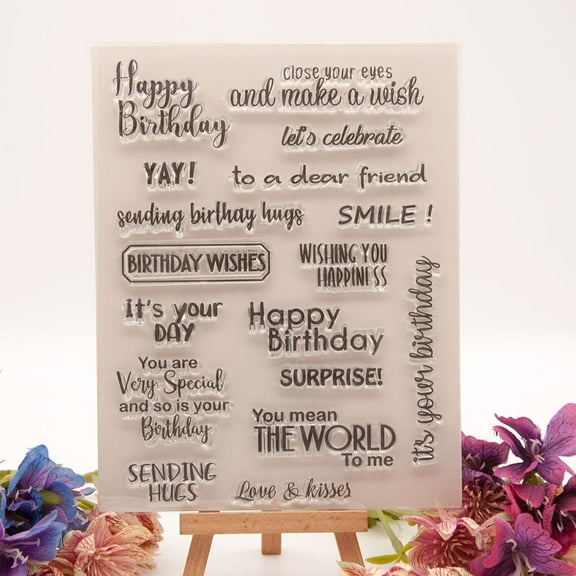 Happy
Birthday
close your eyes
and make a wish
let's celebrate
YAY!
to a dear friend
sending birthay hugs
SMILE !
BIRTHDAY WISHES
WISHING YOU
HAPPINESS
it's your birthday
It's your
DAY
Happy
Birthday
SURPRISE!
You are
Very Special
and so is your
Birthday
You mean
THE WORLD
To me
SENDING
HUGS
Love & kisses